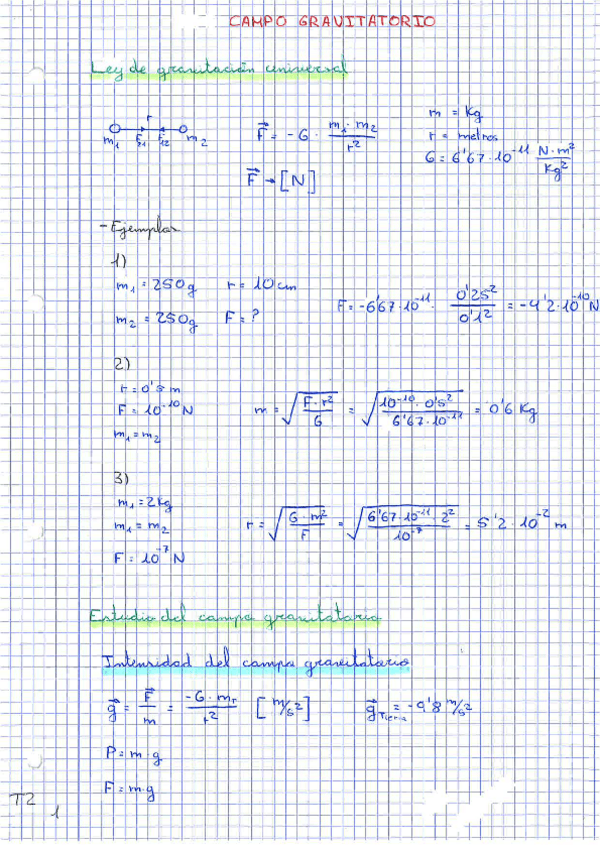 CAMPO GRAVITATORIO
Ley de gravitación universal
r
m₁ F₂₁ F₁₂ m₂
F⃗ = -G · m₁·m₂ / r²
F⃗ → [N]
m = Kg
r = metros
G = 6'67·10⁻¹¹ N·m² / Kg²
- Ejemplos
1)
m₁ = 250g r = 10cm
m₂ = 250g F = ?
F = -6'67·10⁻¹¹ · 0'25² / 0'1² = -4'2·10⁻¹⁰ N
2)
r = 0'5 m
F = 10⁻¹⁰ N
m₁ = m₂
m = √(F·r² / G) = √(10⁻¹⁰ · 0'5² / 6'67·10⁻¹¹) = 0'6 Kg
3)
m₁ = 2Kg
m₁ = m₂
F = 10⁻⁷ N
r = √(G·m² / F) = √(6'67·10⁻¹¹ · 2² / 10⁻⁷) = 5'2·10⁻² m
Estudio del campo gravitatorio
Intensidad del campo gravitatorio
g⃗ = F⃗ / m = -G·m_T / r² [m/s²] g⃗ Tierra = -9'8 m/s²
P = m·g
F = m·g
T2
1